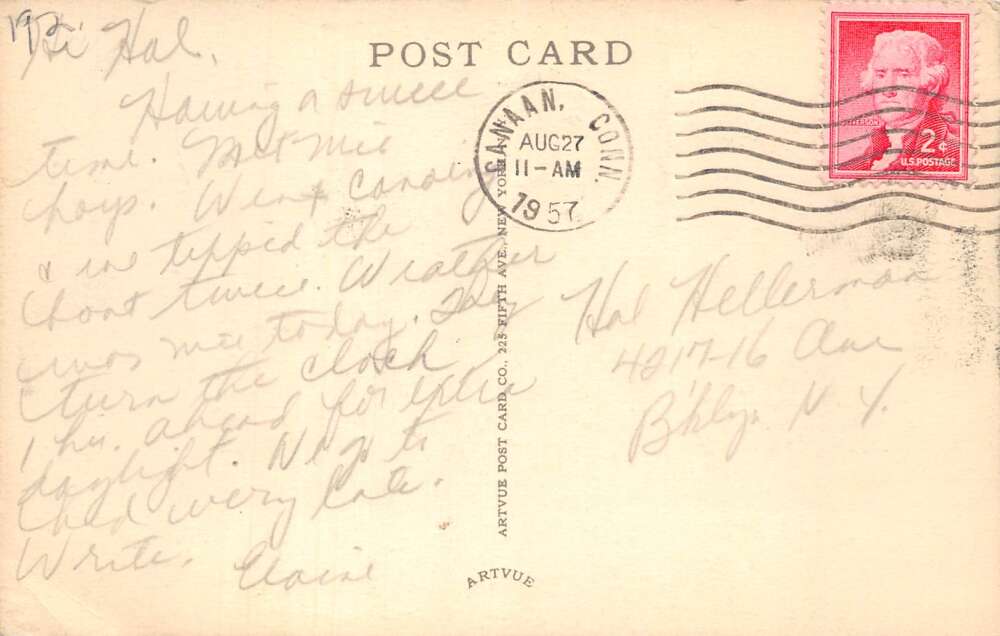 192
Hi Hal,
Having a swell
time. Met nice
boys. Went canoeing
& we tipped the
boat twice. Weather
was nice today. They
turn the clock
1 hr. ahead for extra
daylight. We go to
bed very late.
Write.
Elaine
POST CARD
CANAAN, CONN.
AUG27
11-AM
1957
JEFFERSON
2¢
U.S. POSTAGE
Hal Hellerman
4217-16 Ave
B'klyn. N Y.
ARTVUE POST CARD CO., 225 FIFTH AVE., NEW YORK
ARTVUE